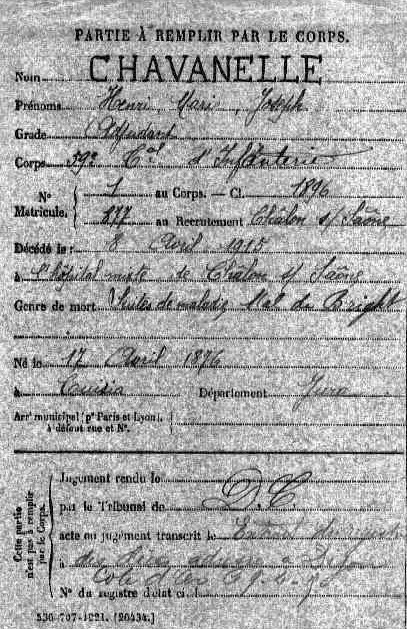 PARTIE À REMPLIR PAR LE CORPS.
Nom CHAVANELLE
Prénoms Henri, Marie, Joseph
Grade Adjudant
Corps 59e d'Infanterie
Nº Matricule. 1 au Corps. — Cl. 1896
177 au Recrutement Chalon s/ Saône
Décédé le 8 Avril 1915
à l'hôpital mixte de Chalon s/ Saône
Genre de mort Suites de maladie Mal de Bright
Né le 17 Avril 1876
à Cuisia Département Jura
Arrt municipal (pr Paris et Lyon), à défaut rue et Nº.
Cette partie n'est pas à remplir par le Corps.
Jugement rendu le
par le Tribunal de D.C
acte ou jugement transcrit le
à
Côte d'Or
Nº du registre d'état ci
536-707-1921. [26434.]